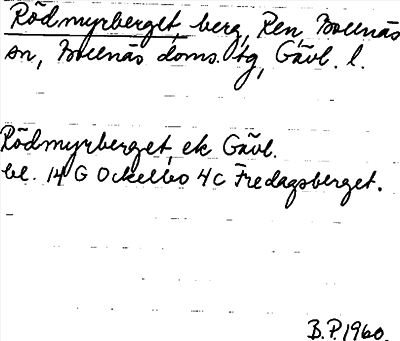 Rödmyrberget, berg, Ren, Bollnäs
sn, Bollnäs doms. tg, Gävl. l.
Rödmyrberget, ek Gävl.
bl. 14 G Ockelbo 4c Fredagsberget.
B.P. 1960.